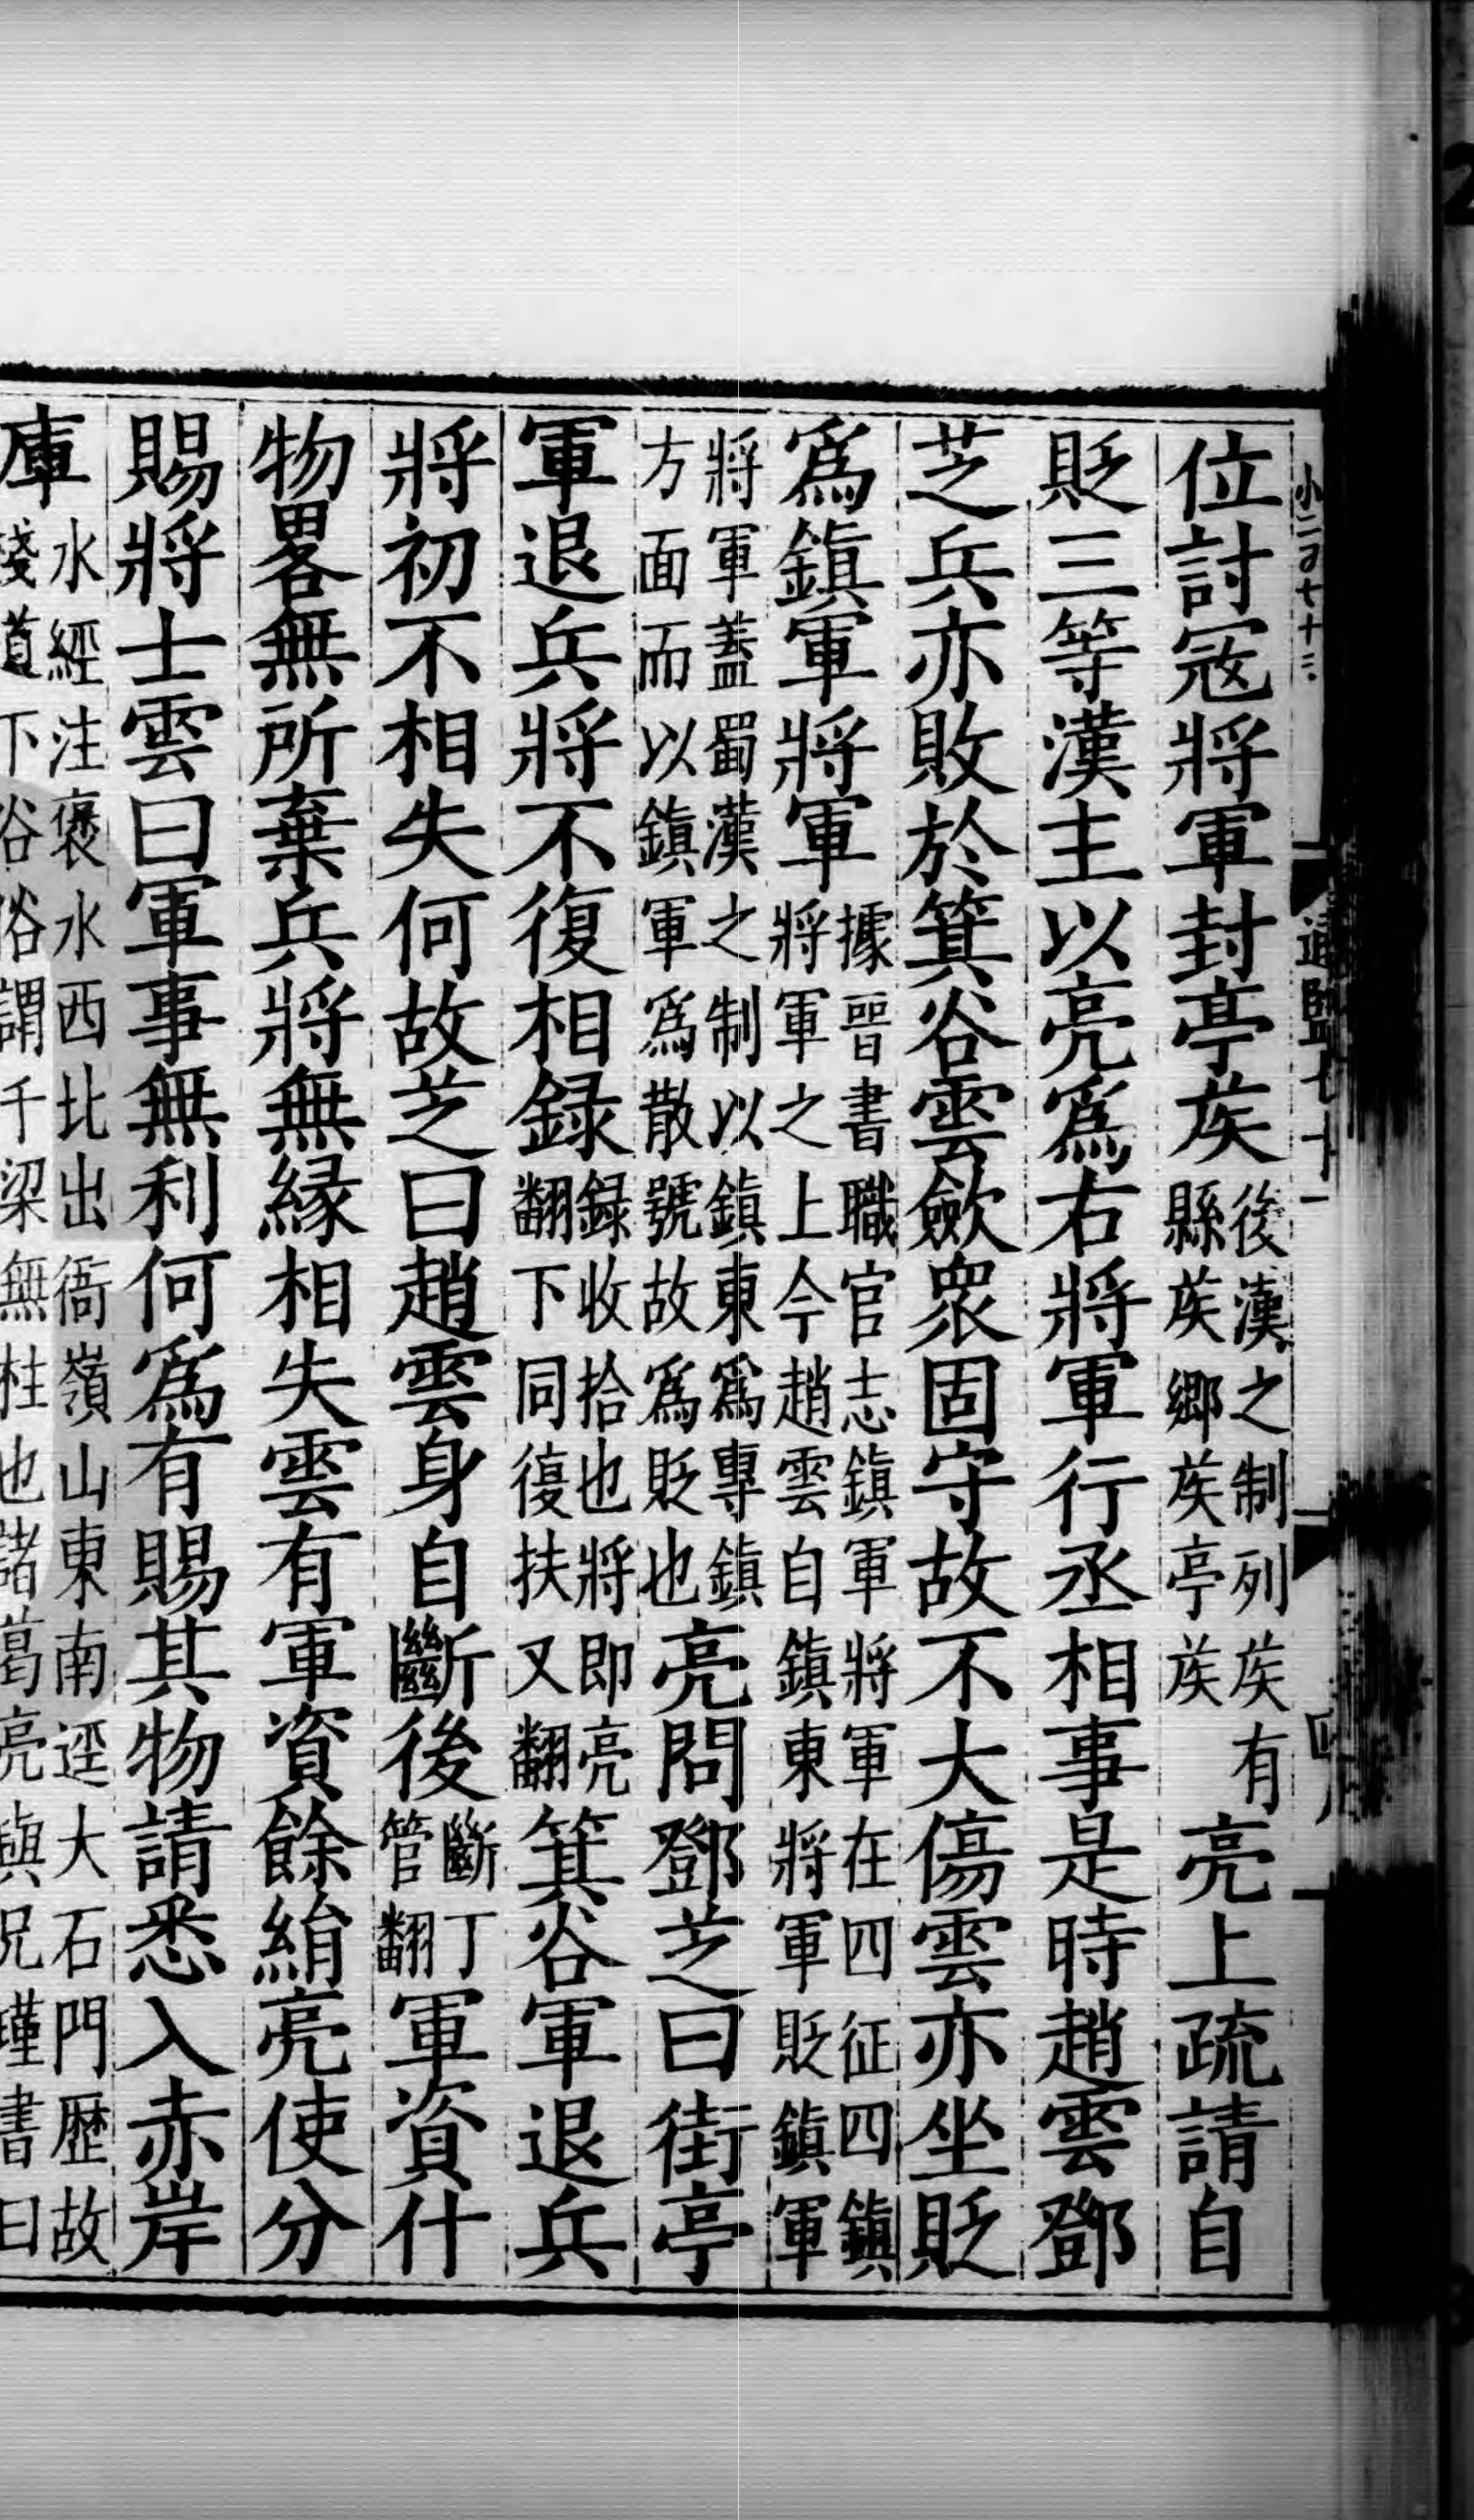 小二百七十三
通鑑七十一
位討寇將軍封亭矦後漢之制列矦有縣矦鄉矦亭矦亮上疏請自
貶三等漢主以亮爲右將軍行丞相事是時趙雲鄧
芝兵亦敗於箕谷雲歛衆固守故不大傷雲亦坐貶
爲鎮軍將軍據晉書職官志鎮軍將軍在四征四鎮將軍之上今趙雲自鎮東將軍貶鎮軍
將軍蓋蜀漢之制以鎮東爲專鎮方面而以鎮軍爲散號故爲貶也亮問鄧芝曰街亭
軍退兵將不復相録録收拾也將即亮翻下同復扶又翻箕谷軍退兵
將初不相失何故芝曰趙雲身自斷後斷丁管翻軍資什
物畧無所棄兵將無緣相失雲有軍資餘絹亮使分
賜將士雲曰軍事無利何爲有賜其物請悉入赤岸
庫水經注褒水西北出衙嶺山東南逕大石門歷故棧道下谷俗謂千梁無柱也諸葛亮與兄瑾書曰